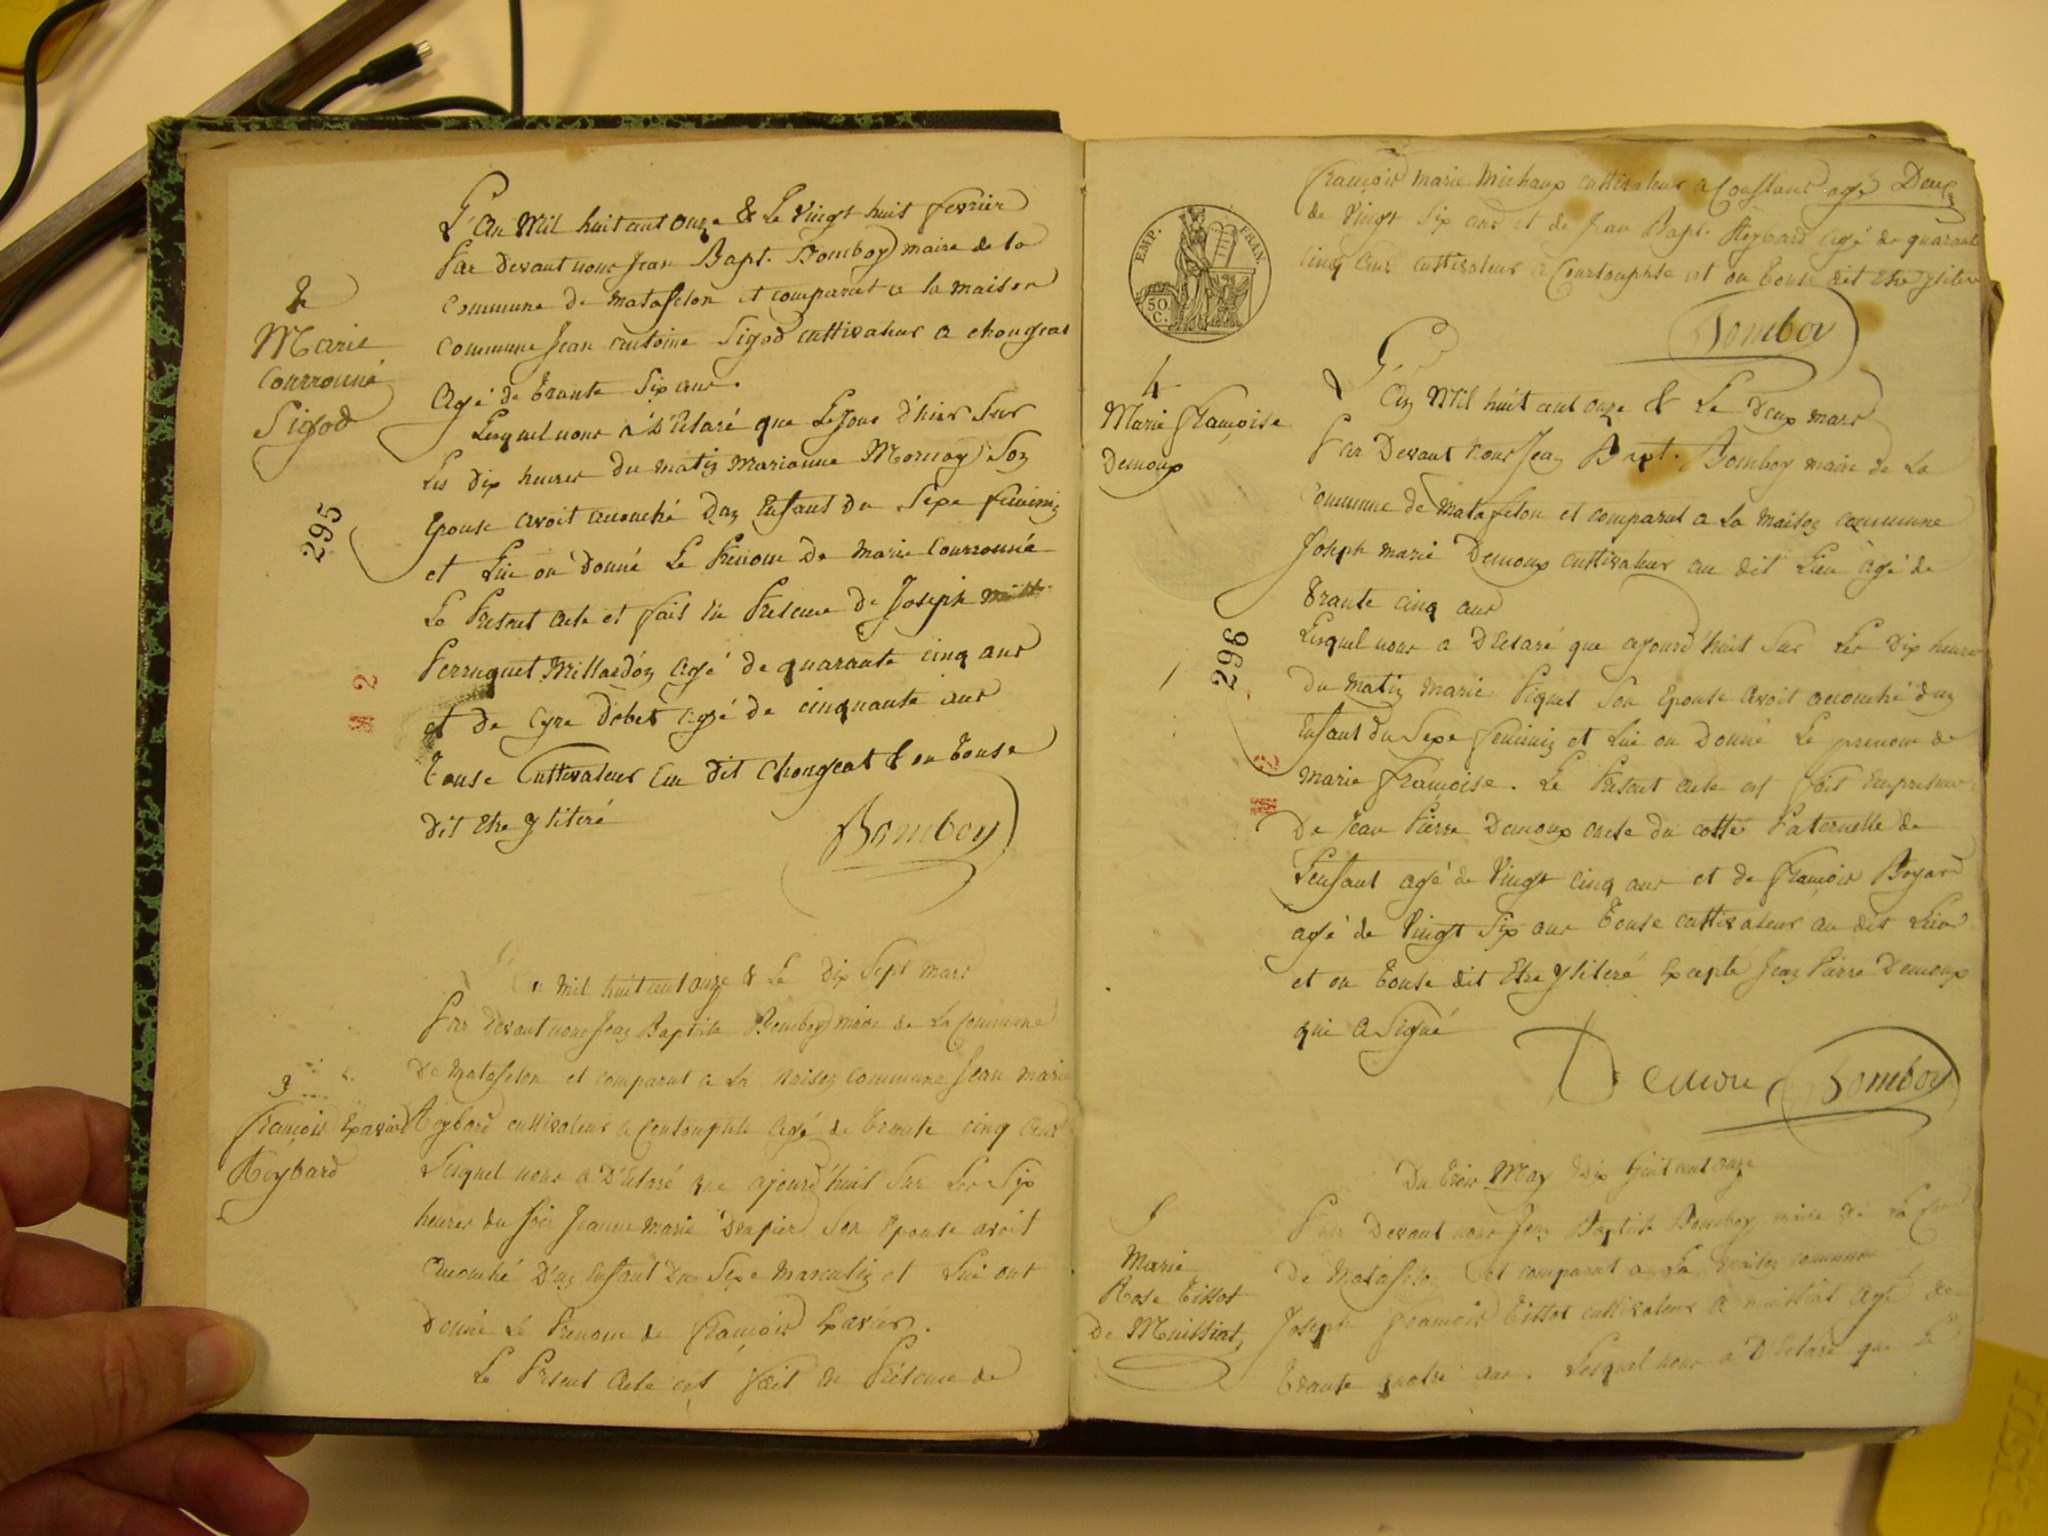 2
Marie
Courronné
Sigod
295
2
L'An Mil huit cent onze & Le Vingt huit fevrier
Par Devant nous Jean Bapt. Bomboy maire de la
Commune de matafelon et comparut a la maison
Commune Jean antoine Sigod cultivateur a chongeat
Agé de trante Six ans.
Lesquel nous a D'Eclaré que Le Jour d'hier Sur
Les dix heures du matin Marianne Mornay Son
Epouse avoit acouché Dun Enfant Du Sexe feminin
et Lui on donné Le Prenom De Marie Courronnée
Le Present acte et fait En Presence De Joseph
Perruquet Millardon Agé de quarante cinq ans
et De Cyre Dobet agé de cinquante ans
touse Cultivateur Au dit Chongeat & on touse
dit Etre Ylitéré
Bomboy
3
François Exavier
Reybard
mil huit cent onze & Le Dix Sept mars
Par devant nous Jean Baptiste Bomboy maire de La Commune
De Matafelon et comparut a La maison Commune Jean marie
Reybard cultivateur a Courtouphle Agé de trante cinq ans
Lesquel nous a D'Eclaré que ajourd'huit Sur Les Six
heures du soir Jeanne Marie Drapier Son Epouse avoit
acouché D'un Enfant Du Sexe Masculin et Lui ont
Donné Le Prenom de François Exavier.
Le Present Acte est fait En Présence de
EMP. FRAN.
50 C.
François marie Michaux cultivateur a agé Deux
de Vingt Six ans et de Jean Bapt. Reybard agé de quarante
cinq ans cultivateur a Courtouphle et on touse dit Etre Ylitéré
Bomboy
4
Marie Françoise
Demoux
296
2
L'An Mil huit cent onze & Le Deux mars
Par Devant nous Jean Bapt. Bomboy maire de La
Commune de Matafelon et comparut a La maison commune
Joseph marie Demoux cultivateur au dit Lieu agé de
trante cinq ans
Lesquel nous a D'Eclaré que ajourd'huit Sur Les Dix heures
Du Matin Marie Piquet Son Epouse avoit acouché dun
Enfant du Sexe feminin et Lui on Donné Le prenom de
Marie françoise. Le Present acte est fait En presence
De Jean Pierre Demoux oncle du cotté Paternelle de
L'enfant agé de Vingt cinq ans et de François Boyard
agé de Vingt Six ans touse cultivateur au dit Lieu
et on touse dit Etre Ylitéré Excepte Jean Pierre Demoux
qui a Signé
Demou Bomboy
5
Marie
Rose Tissot
De Muissiat
Du trois May Dix huit cent onze
Par Devant nous Jean Baptiste Bomboy maire de La
De Matafelon et comparut a La maison commune
Joseph François Tissot cultivateur a Muissiat agé de
trante quatre ans. Lesquel nous a D'Eclaré que Le